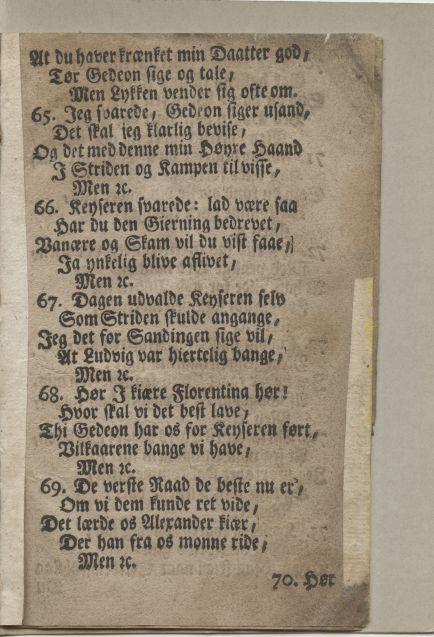 At du haver krænket min Daatter god,
Tør Gedeon sige og tale,
Men Lykken vender sig ofte om.
65. Jeg svarede, Gedeon siger usand,
Det skal jeg klarlig bevise,
Og det med denne min Høyre Haand
J Striden og Kampen til visse,
Men ꝛc.
66. Keyseren svarede: lad være saa
Har du den Gierning bedrevet,
Vanære og Skam vil du vist faae,
Ja ynkelig blive aflivet,
Men ꝛc.
67. Dagen udvalde Keyseren selv
Som Striden skulde angange,
Jeg det for Sandingen sige vil,
At Ludvig var hiertelig bange,
Men ꝛc.
68. Hør J kiære Florentina hør!
Hvor skal vi det best lave,
Thi Gedeon har os for Keyseren ført,
Vilkaarene bange vi have,
Men ꝛc.
69. De verste Raad de beste nu er,
Om vi dem kunde ret vide,
Det lærde os Alexander kiær,
Der han fra os monne ride,
Men ꝛc.
70. Hør